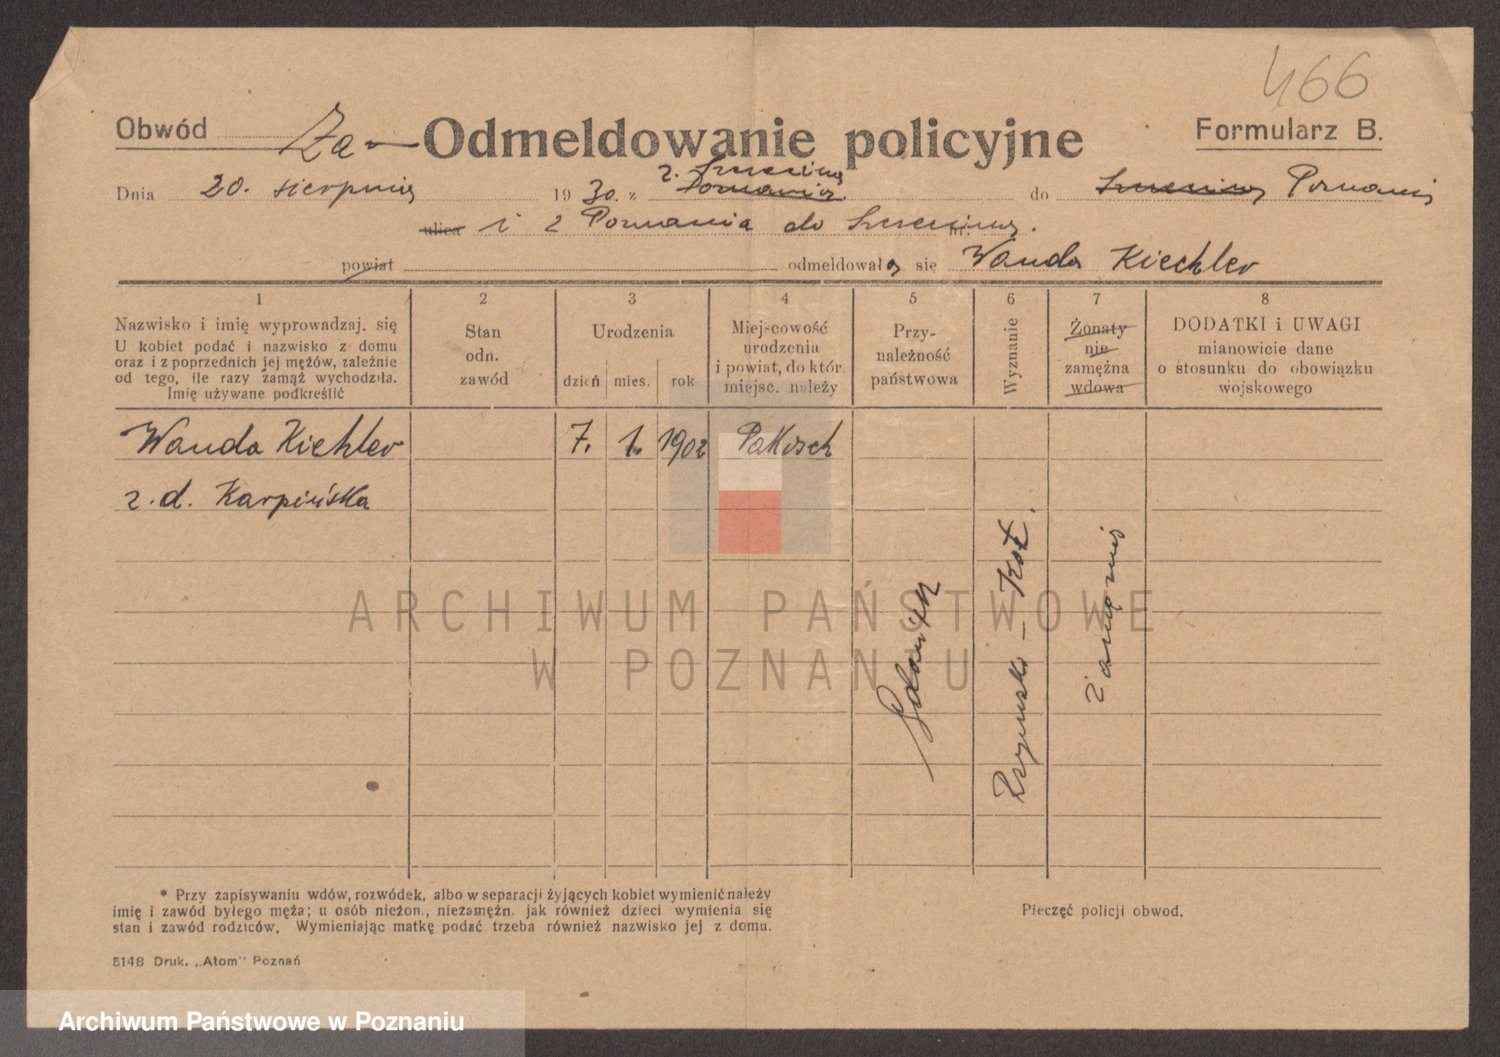 466
Obwód Za- Odmeldowanie policyjne Formularz B.
z. Szczecina
Dnia 20. sierpnia 1930. z Poznania do Szczecina Poznania
ulica i z Poznania do Szczecina. nr.
powiat odmeldowała się Wanda Kiechler
1 2 3 4 5 6 7 8
Nazwisko i imię wyprowadzaj. się
U kobiet podać i nazwisko z domu
oraz i z poprzednich jej mężów, zależnie
od tego, ile razy zamąż wychodziła.
Imię używane podkreślić
Stan
odn.
zawód
Urodzenia
dzień mies. rok
Miejscowość
urodzenia
i powiat, do któr.
miejsc. należy
Przy-
należność
państwowa
Wyznanie
Żonaty
nie
zamężna
wdowa
DODATKI i UWAGI
mianowicie dane
o stosunku do obowiązku
wojskowego
Wanda Kiehler 7. 1. 1902 Pakosch
z. d. Karpińska
Gdańsk
Rzymsko-Kat.
ARCHIWUM PAŃSTWOWE
W POZNANIU
* Przy zapisywaniu wdów, rozwódek, albo w separacji żyjących kobiet wymienić należy
imię i zawód byłego męża; u osób nieżon., niezamężn. jak również dzieci wymienia się
stan i zawód rodziców. Wymieniając matkę podać trzeba również nazwisko jej z domu.
Pieczęć policji obwod.
5148 Druk. „Atom" Poznań
Archiwum Państwowe w Poznaniu